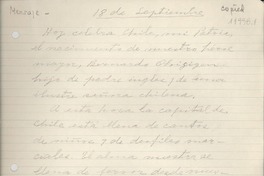 Mensaje -
18 de Septiembre
copied
Hoy celebra Chile, mi Patria,
el nacimiento de nuestro héroe
mayor, Bernardo O'Higgins
hijo de padre ingles y de una
ilustre señora chilena.
A esta hora la capital de
Chile está llena de cantos
de niños y de desfiles mar-
ciales. El alma nuestra se
llena de fervor desde